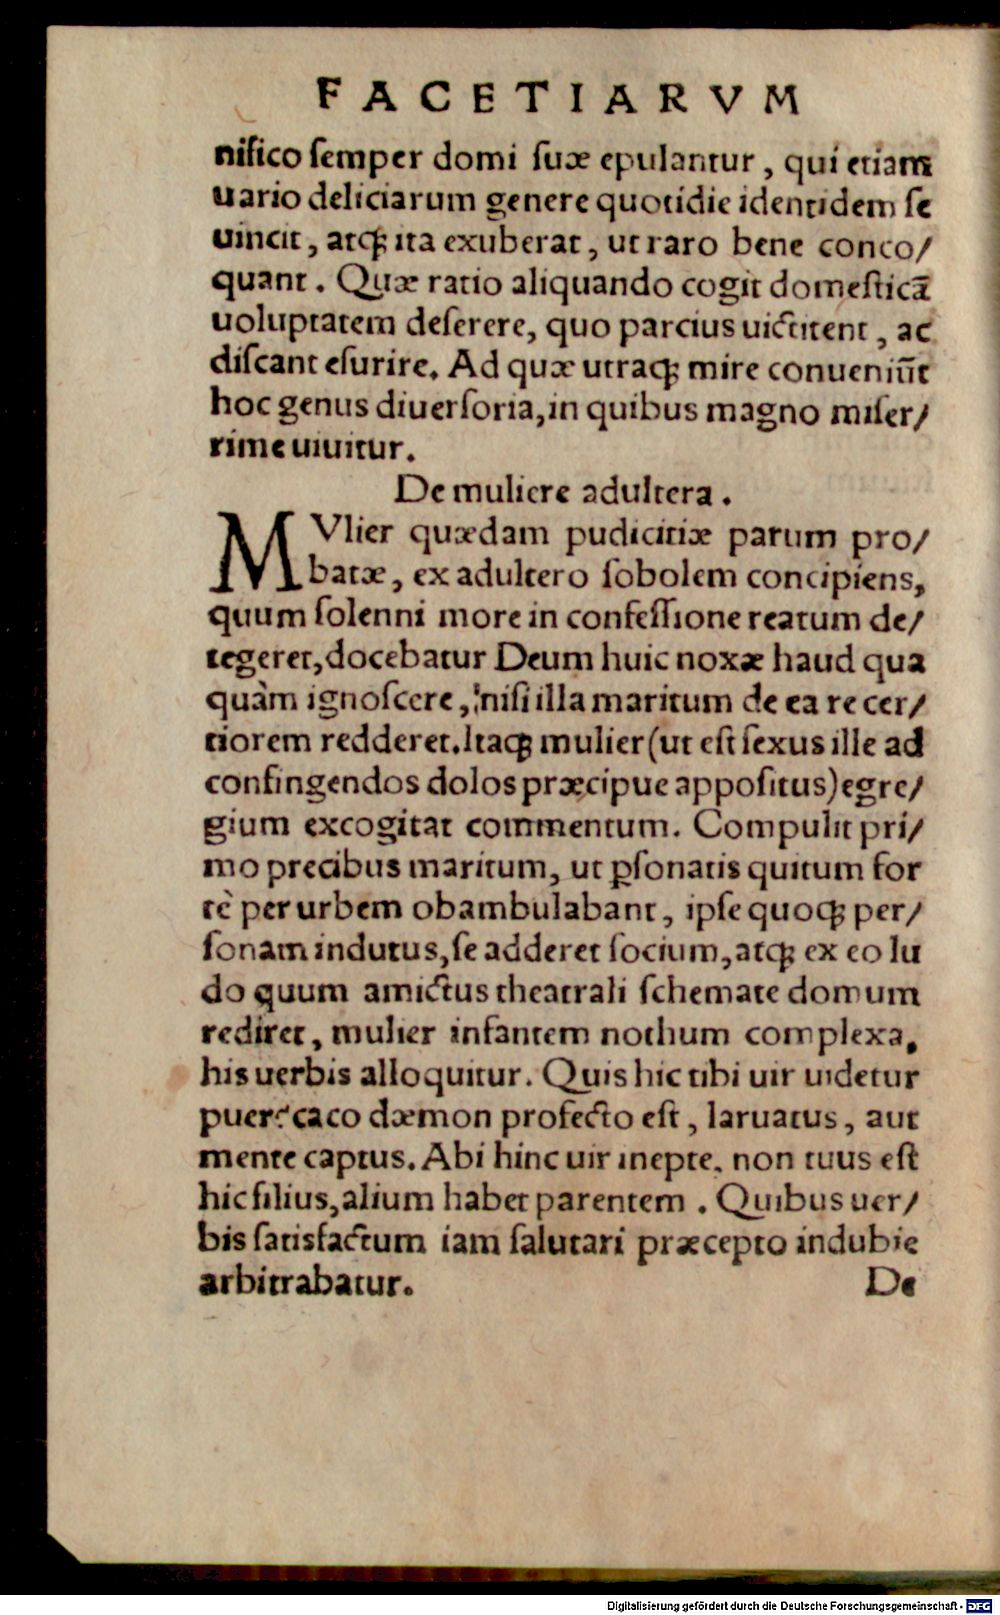 FACETIARVM
nifico ſemper domi ſuæ epulantur, qui etiam
uario deliciarum genere quotidie identidem ſe
uincit, atq; ita exuberat, ut raro bene conco/
quant. Quæ ratio aliquando cogit domeſticã
uoluptatem deſerere, quo parcius uictitent, ac
diſcant eſurire. Ad quæ utraq; mire conueniũt
hoc genus diuerſoria, in quibus magno miſer/
rime uiuitur.
De muliere adultera.
MVlier quædam pudicitiæ parum pro/
batæ, ex adultero ſobolem concipiens,
quum ſolenni more in confeſſione reatum de/
tegeret, docebatur Deum huic noxæ haud qua
quàm ignoſcere, niſi illa maritum de ea re cer/
tiorem redderet. Itaq; mulier (ut eſt ſexus ille ad
confingendos dolos præcipue appoſitus) egre/
gium excogitat commentum. Compulit pri/
mo precibus maritum, ut ꝑſonatis quitum for
tè per urbem obambulabant, ipſe quoq; per/
ſonam indutus, ſe adderet ſocium, atq; ex eo lu
do quum amictus theatrali ſchemate domum
rediret, mulier infantem nothum complexa,
his uerbis alloquitur. Quis hic tibi uir uidetur
puer? caco dæmon profecto eſt, laruatus, aut
mente captus. Abi hinc uir inepte, non tuus eſt
hic filius, alium habet parentem. Quibus uer/
bis ſatisfactum iam ſalutari præcepto indubie
arbitrabatur.
De
Digitalisierung gefördert durch die Deutsche Forschungsgemeinschaft - DFG